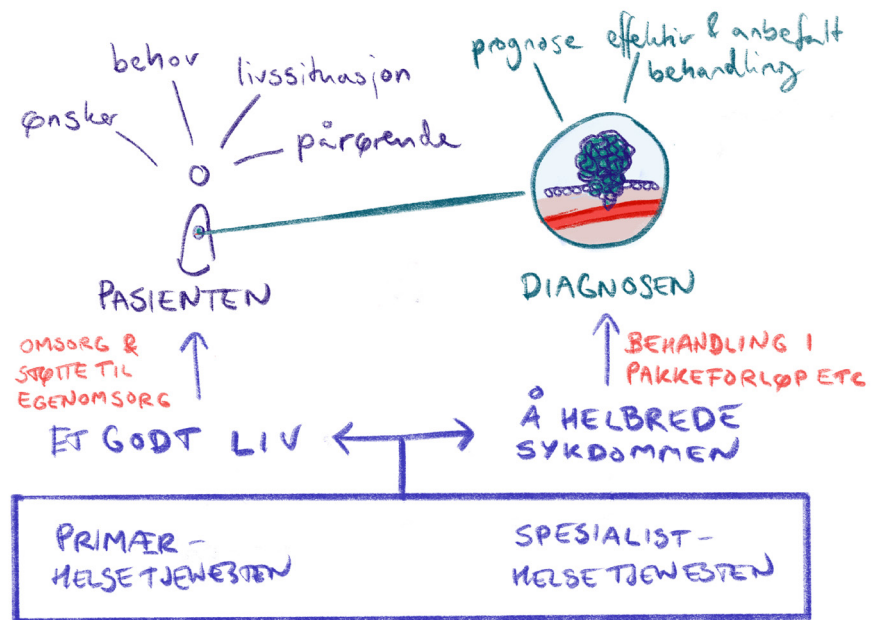 behov
livssituasjon
ønsker
pårørende
PASIENTEN
prognose
effektiv & anbefalt
behandling
DIAGNOSEN
OMSORG &
STØTTE TIL
EGENOMSORG
BEHANDLING I
PAKKEFORLØP ETC
ET GODT LIV
Å HELBREDE
SYKDOMMEN
PRIMÆR-
HELSETJENESTEN
SPESIALIST-
HELSETJENESTEN